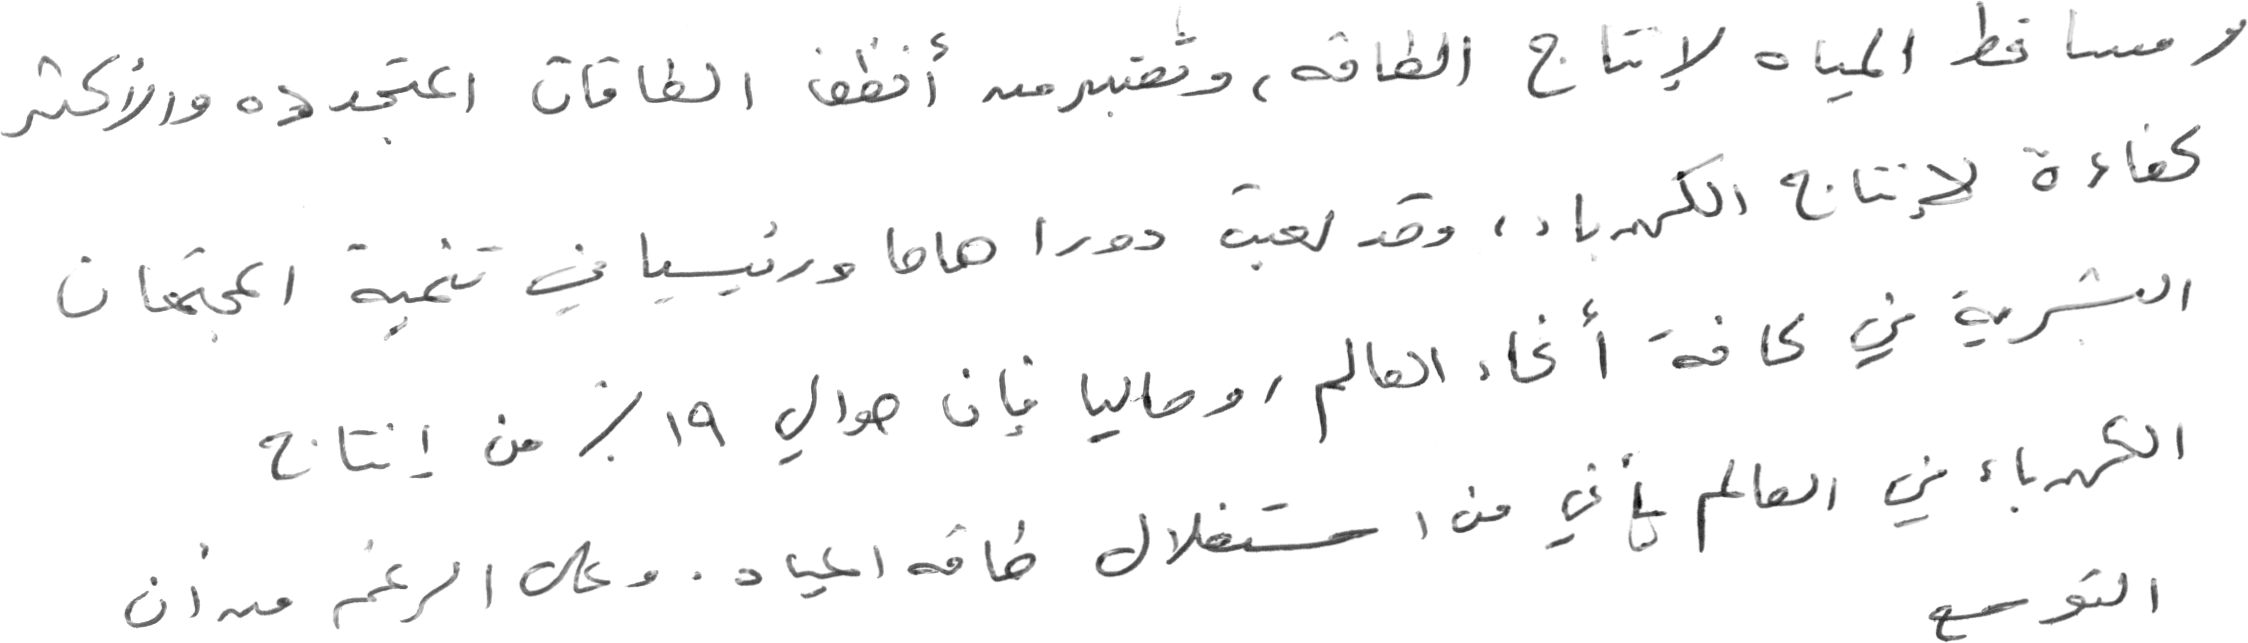 ومساقط المياه لإنتاج الطاقه، وتعتبر من أنظف الطاقات المتجدده والأكثر
كفاءة لإنتاج الكهرباء، وقد لعبت دورا هاما ورئيسيا في تنمية المجتمعات
البشرية في كافة أنحاء العالم، وحاليا فإن حوالي ١٩٪ من إنتاج
الكهرباء في العالم يأتي من استغلال طاقه المياه. وعلى الرغم من أن
التوسع